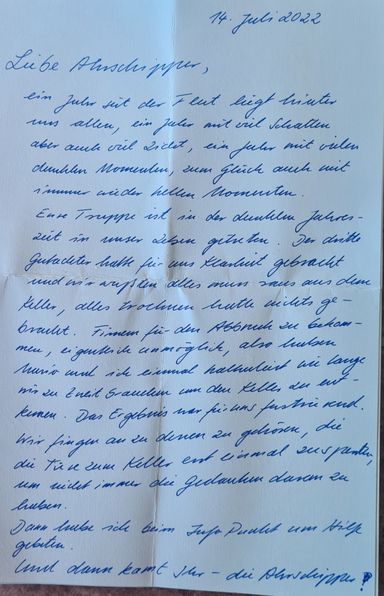 14. Juli 2022
Liebe Ahrschipper,
ein Jahr seit der Flut liegt hinter
uns allen, ein Jahr mit viel Schatten
aber auch viel Licht, ein Jahr mit vielen
dunklen Momenten, zum Glück auch mit
immer wieder hellen Momenten.
Eure Truppe ist in der dunklen Jahres-
zeit in unser Leben getreten. Der dritte
Gutachter hatte für uns Klarheit gebracht
und wir wußten alles muss raus aus dem
Keller, alles trocknen hatte nichts ge-
bracht. Firmen für den Abbruch zu bekom-
men, eigentlich unmöglich, also haben
und ich einmal kalkuliert wie lange
wir zu zweit brauchen um den Keller zu ent-
kernen. Das Ergebnis war für uns frustrierend.
Wir fingen an zu denen zu gehören, die
die Türe zum Keller erst einmal zusperrten,
um nicht immer die Gedanken daran zu
haben.
Dann habe ich beim Info Punkt um Hilfe
gebeten.
Und dann kamt Ihr - die Ahrschipper!